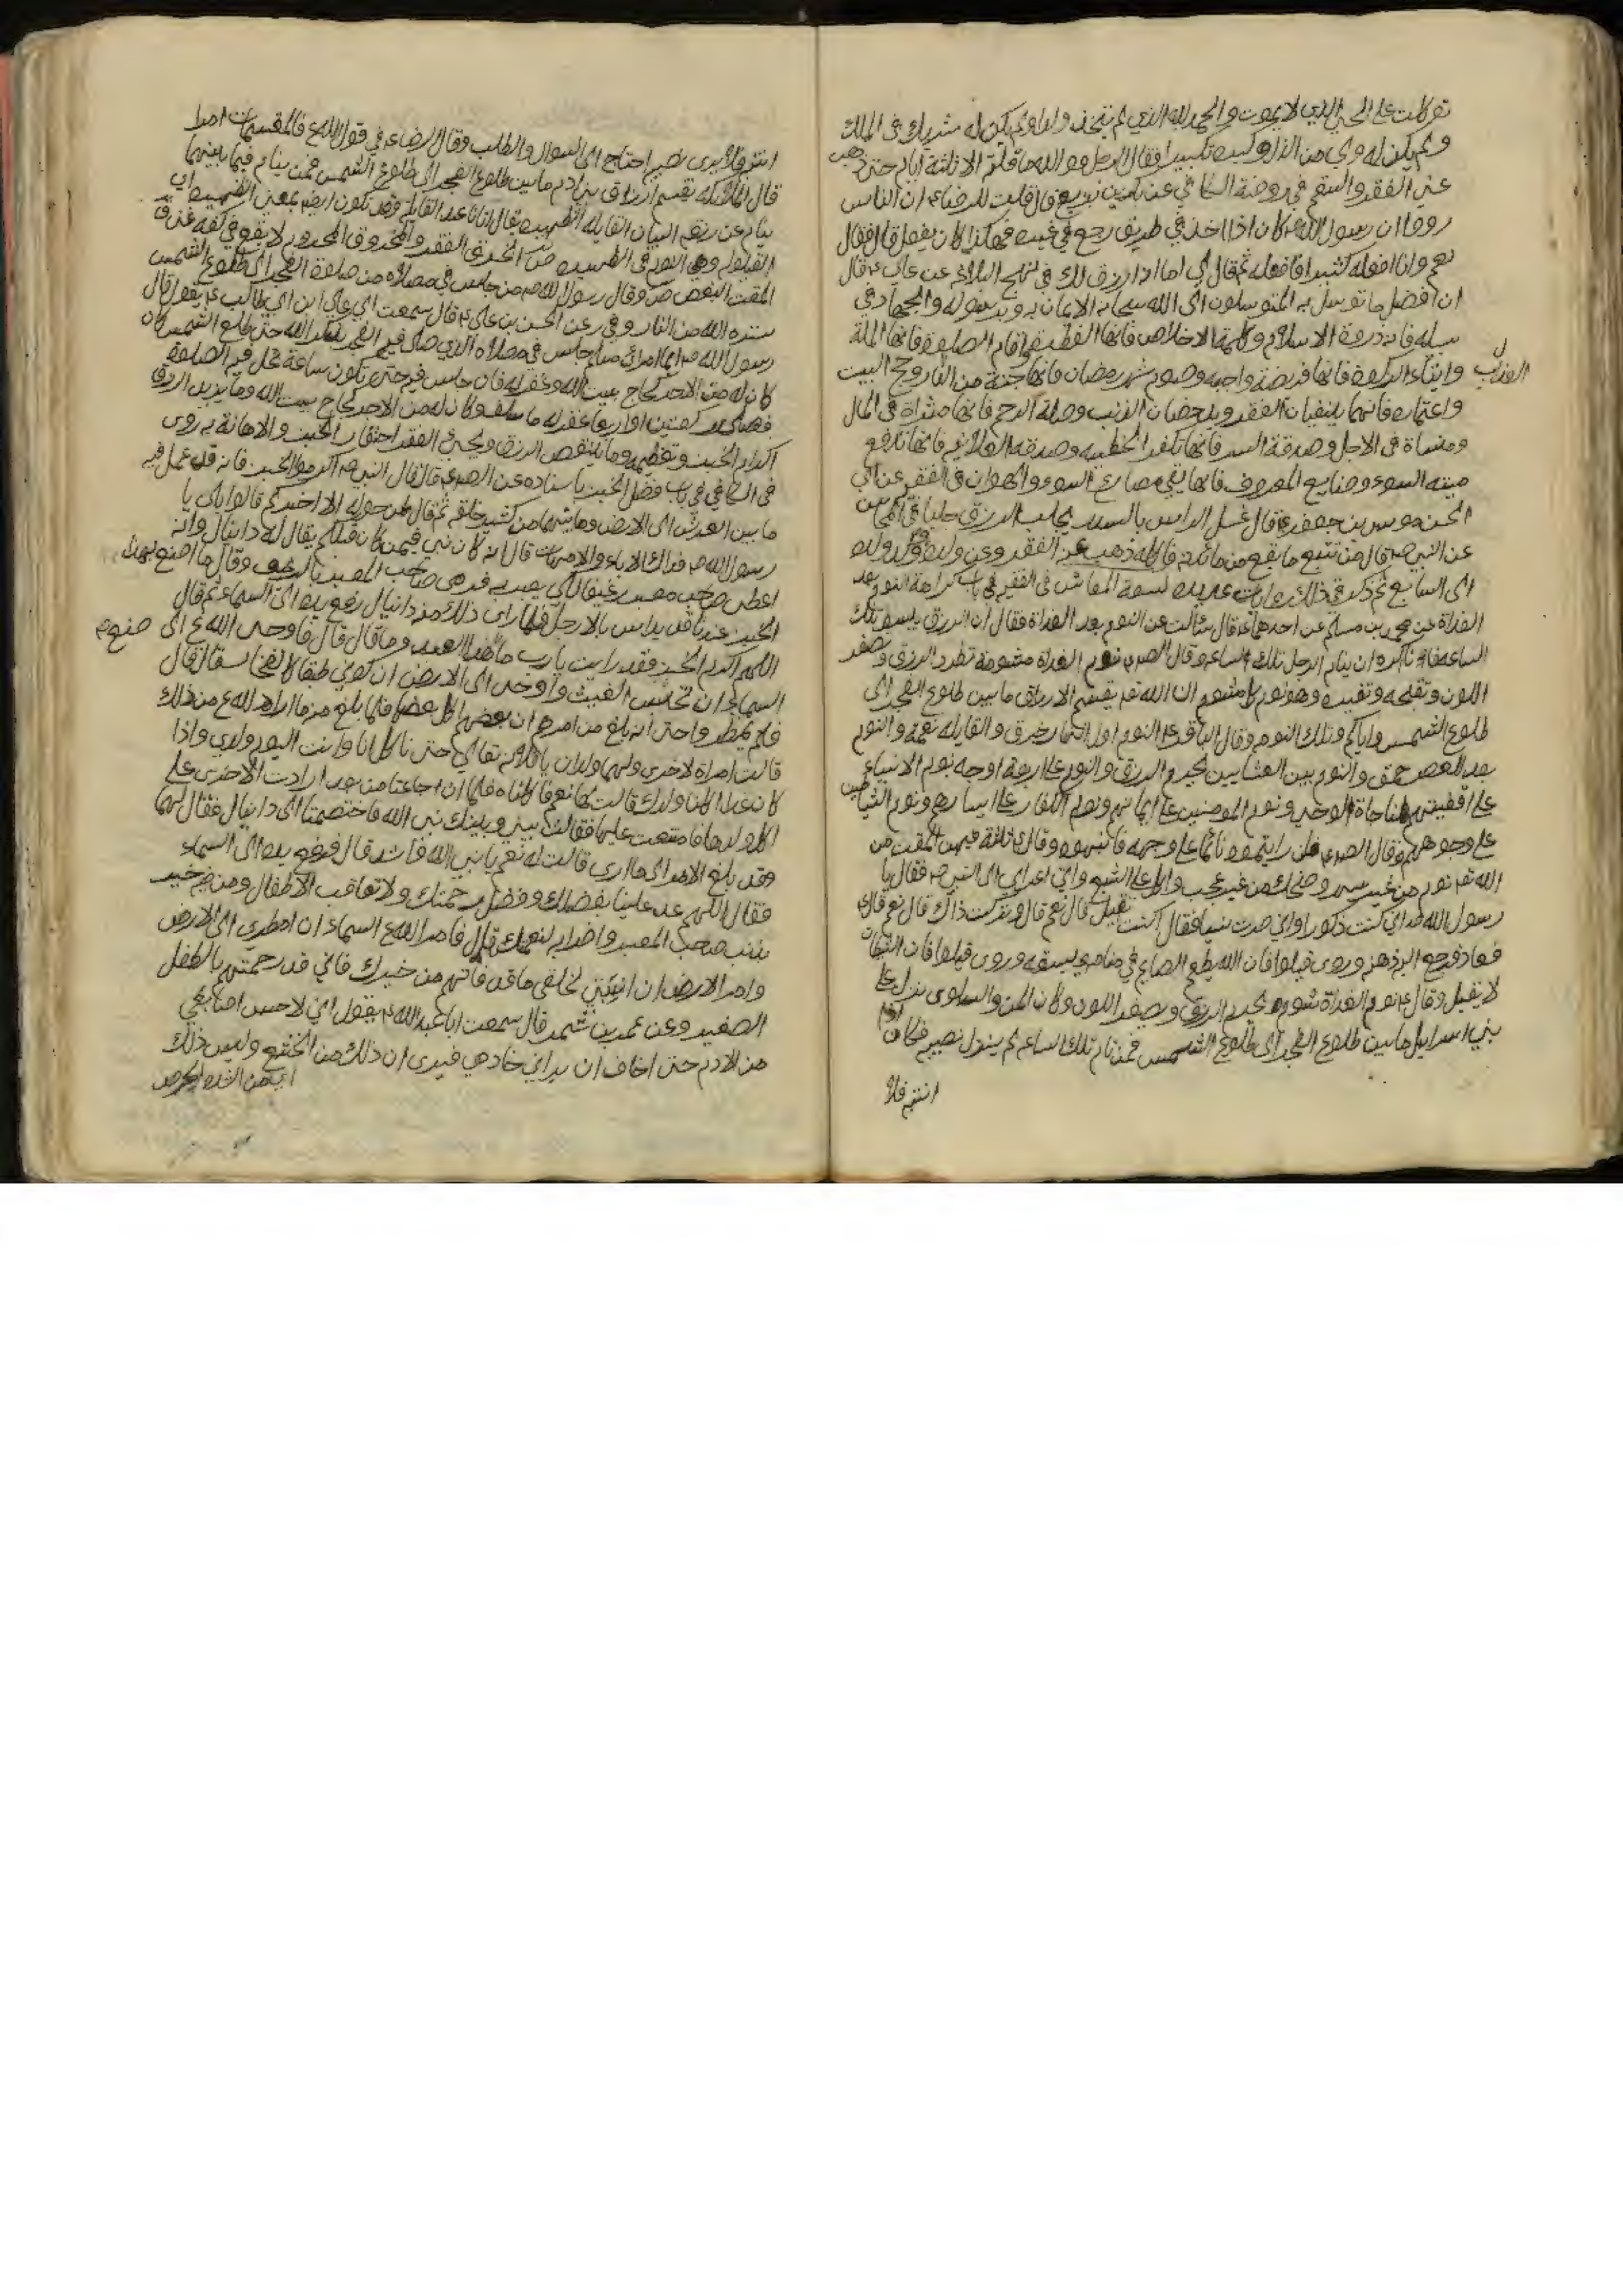 توكلت على الحي الذي لا يموت والحمد لله الذي لم يتخذ ولدا ولم يكن له شريك في الملك
ولم يكن له ولي من الذل وكبره تكبيرا فقال الرجل فو الله ما قلته الا ثلثة ايام حتى ذهب
عني الفقر والسقم في روضة الكافي عن بن بزيع قال قلت للرضا ع ان الناس
رووا ان رسول الله ص كان اذا اخذ في طريق رجع في غيره فهكذا كان يفعل قال فقال
نعم وانا افعله كثيرا فافعله ثم قال لي اما انه ارزق لك في نهج البلاغه عن علي ع قال
ان افضل ما توسل به المتوسلون الى الله سبحانه الايمان به وبرسوله والجهاد في
سبيله فانه ذروة الاسلام وكلمة الاخلاص فانها الفطرة واقام الصلوة فانها الملة
وايتاء الزكوة فانها فريضة واجبه وصوم شهر رمضان فانها جنة من النار وحج البيت
العذاب
واعتماره فانهما ينفيان الفقر ويرحضان الذنب وصلة الرحم فانها مثراة في المال
ومنساة في الاجل وصدقة السر فانها تكفر الخطيه وصدقه العلانيه فانها تدفع
ميته السوء وصنايع المعروف فانها تقي مصارع السوء والهوان في الفقر عن ابي
الحسن موسى بن جعفر ع قال غسل الراس بالسدر يجلب الرزق جلبا في
عن النبي ص قال من تتبع ما يقع من مائدته فاكله ذهب عنه الفقر وعن ولده وولد ولده
الى السابع ثم ذكر في ذلك روايات عديده لسعة المعاش في الفقيه في باب كراهة النوم بعد
الغداة عن محمد بن مسلم عن احدهما ع قال سئلت عن النوم بعد الغداة فقال ان الرزق يبسط تلك
الساعه فانا اكره ان ينام الرجل تلك الساعه وقال الصادق ع نوم الغداة مشومة تطرد الرزق وتصفر
اللون وتقبحه وتغيره وهو نوم كل مشوم ان الله تعم يقسم الارزاق ما بين طلوع الفجر الى
طلوع الشمس واياكم وتلك النوم وقال الباقر ع النوم اول النهار خرق والقايله نعمة والنوم
بعد العصر حمق والنوم بين العشايين يحرم الرزق والنوم على اربعة اوجه نوم الانبياء
على اقفيتهم لمناجاة الوحي ونوم المومنين على ايمانهم ونوم الكفار على ايسارهم ونوم الشياطين
على وجوههم وقال الصادق ع من رايتموه نائما على وجهه فانبهوه وقال ع ثلاثة فيهن المقت من
الله تعم نوم من غير سهر وضحك من غير عجب واكل على الشبع واتى اعرابي الى النبي ص فقال يا
رسول الله ص اني كنت ذكورا واني صرت نسيا فقال اكنت تقيل قال نعم قال وتركت ذاك قال نعم قال
فعاد فرجع اليه ذهنه وروى قيلوا فان الله يطعم الصايم في منامه ويسقيه وروى قيلوا فان الشيطان
لا يقيل وقال ع نوم الغداة شوم يحرم الرزق ويصفر اللون وكان المن والسلوى ينزل على
بني اسرائيل ما بين طلوع الفجر الى طلوع الشمس فمن نام تلك الساعه لم ينزل نصيبه فكان اذا
انتبه فلا
انتبه فلا يرى نصيبه احتاج الى السوال والطلب وقال الرضا ع في قول الله ع فالمقسمات امرا
قال الملائكه تقسم ارزاق بني ادم ما بين طلوع الفجر الى طلوع الشمس فمن ينام فيما بينهما
ينام عن رزقه البيان القايله الظهيره يقال اتانا عند القايله وقد تكون ايضا بمعنى
القيلوله وهي النوم في الظهيره الخرق الفقر والمحروم لا يقع في كفه
المقت البغض وقال رسول الله ص من جلس في مصلاه من صلوة الفجر الى طلوع الشمس
ستره الله من النار وفي عن الحسن بن علي ع قال سمعت ابي علي ابن ابي طالب ع يقول قال
رسول الله ص ايما امرئ مسلم جلس في مصلاه الذي صلى فيه الفجر يذكر الله حتى طلع الشمس كان
كان له من الاجر كحاج بيت الله وغفر له فان جلس فيه حتى تكون ساعة تحل فيه الصلوة
فصلى ركعتين او اربعا غفر له ما سلف وكان له من الاجر كحاج بيت الله وما يزيد الرزق
اكرام الخبز وتعظيمه وما ينقص الرزق ويجري الفقر احتقار الخبز والاهانة به روى
في الكافي في باب فضل الخبز باسناده عن الصادق ع قال قال النبي ص اكرموا الخبز فانه قد عمل فيه
ما بين العرش الى الارض وما بينهما من كثير خلقه ثم قال لمن حوله الا اخبركم قالوا بلى يا
رسول الله ص فداك الاباء والامهات قال انه كان نبي فيمن كان قبلكم يقال له دانيال وانه
اعطى صاحب معبر رغيفا لكي يعبر به فرمى صاحب المعبر بالرغيف وقال ما اصنع بهذا
الخبز عندنا قد يداس بالارجل فلما راى ذلك منه دانيال رفع يده الى السماء ثم قال
اللهم اكرم الخبز فقد رايت يا رب ما صنع هذا العبد وما قال قال فاوحى الله ع الى
السماء ان تحبس الغيث واوحى الى الارض ان كوني طبقا كالفخار قال
فلم يمطروا حتى انه بلغ من امرهم ان بعضهم اكل بعضا فلما بلغ منهم ما اراد الله ع من ذلك
قالت امراة لاخرى ولهما ولدان يا فلانه تعالي حتى ناكل انا وانت اليوم ولدي واذا
كان غدا اكلنا ولدك قالت لها نعم فاكلتاه فلما ان اجاعتا من بعد ارادت الاخرى على
اكل ولدها فامتنعت عليها فقالت بيني وبينك نبي الله فاختصمتا الى دانيال فقال لهما
وقد بلغ الامر الى ما ارى قالت له نعم يا نبي الله قال فرفع يده الى السماء
فقال اللهم عد علينا بفضلك وفضل رحمتك ولا تعاقب الاطفال ومن فيه خير
بذنب صاحب المعبر واضرابه لنعمتك قال فامر الله ع السماء ان امطري الى الارض
وامر الارض ان انبتي لخلقي ما قد فاتهم من خيرك فاني قد رحمتهم بالطفل
الصغير وعن عمرو بن شمر قال سمعت ابا عبد الله ع يقول اني لاحس اصابعي
من الادم حتى اخاف ان يراني خادمي فيرى ان ذلك من الجشع وليس ذلك